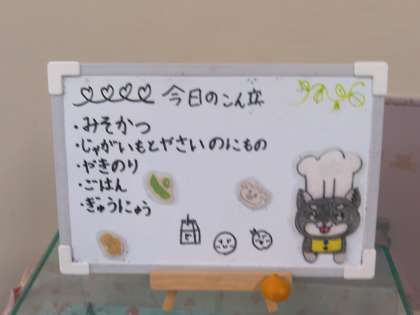 今日のこん立
・みそかつ
・じゃがいもとやさいのにもの
・やきのり
・ごはん
・ぎゅうにゅう